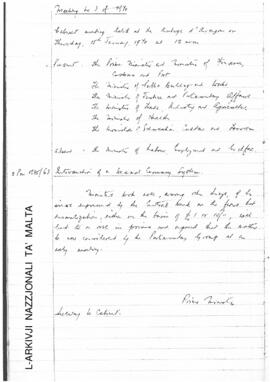 Meeting No 3 of 1970
Cabinet meeting held at the Auberge d'Aragon on
Thursday, 15th January 1970 at 12 noon
Present - the Prime Minister and Minister of Finance,
Customs and Port
The Minister of Public Building and Works
The Minister of Justice and Parliamentary Affairs
The Minister of Trade, Industry and Agriculture
The Minister of Health
The Minister of Education, Culture and Tourism
Absent - the Minister of Labour, Employment and Welfare
Introduction of a Decimal Currency System
Ministers took note, among other things, of the
views expressed by the Central Bank on the
decimalization, either on the basis of
lead to a rise in prices and agreed that the matter
be now considered by the Parliamentary Group at an
early meeting.
Prime Minister
Secretary to Cabinet.
L-ARKIVJI NAZZJONALI TA' MALTA